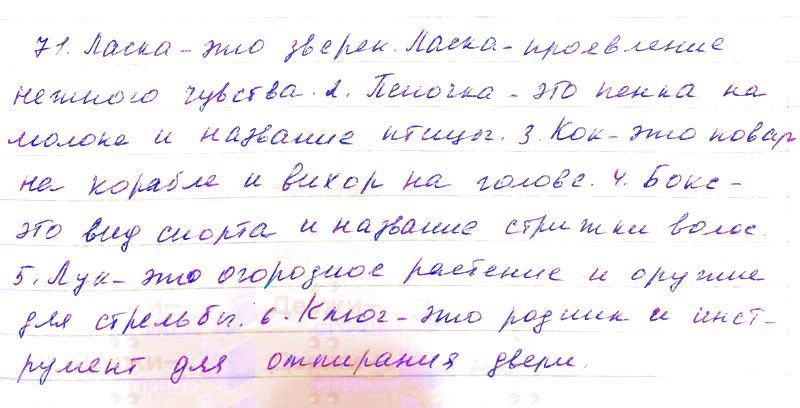 71. Ласка - это зверек. Ласка - проявление
нежного чувства. 2. Пеночка - это пенка на
молоке и название птицы. 3. Кок - это повар
на корабле и вихор на голове. 4. Бокс -
это вид спорта и название стрижки волос.
5. Лук - это огородное растение и оружие
для стрельбы. 6. Ключ - это родник и инст-
румент для отпирания двери.